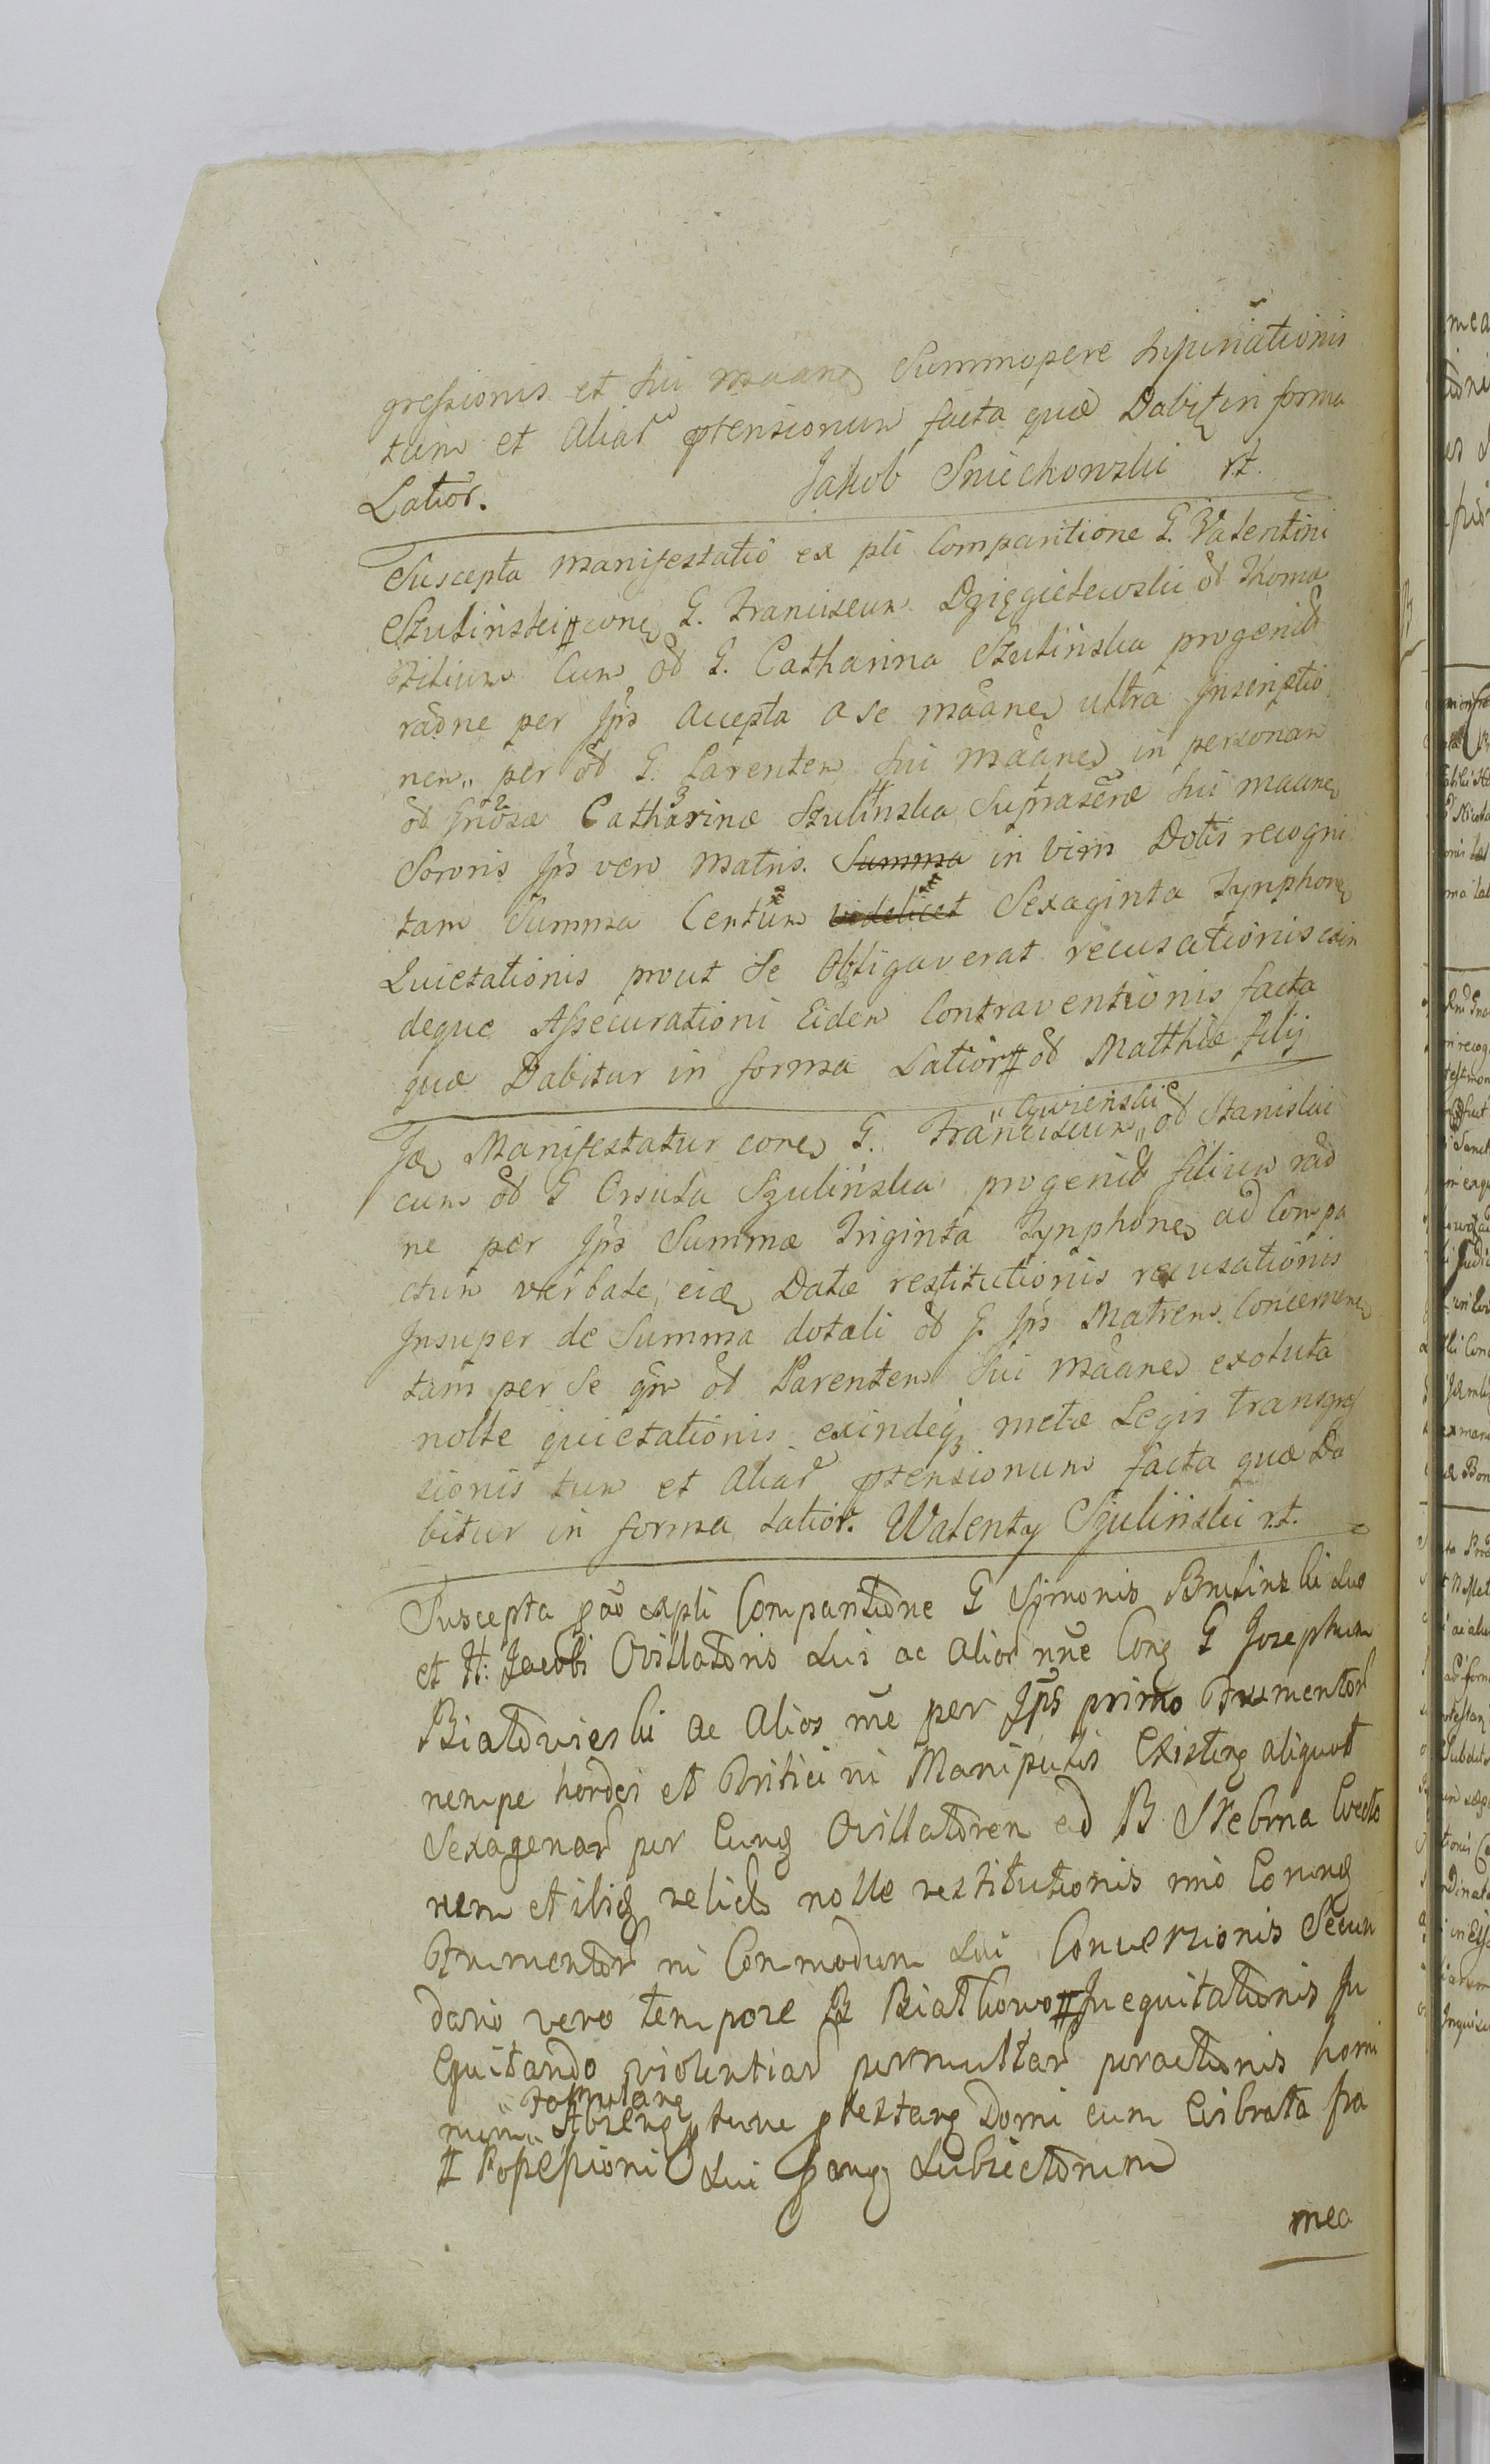 gressionis et sui maane Summopere Injuriationis
tum et Aliar ptensionum facta quæ Dabitur in forma
Latior. Jakob Sniechowski rt.
Suscepta manifestatio ex pli Comparitione G. Valentini
Szulinski cone G. Franciscum Dzięgielewski od Thoma
Filium Cum od G. Catharina Szulińska progenit
raone per Ips accepta a se maane ultra Inscriptio
nem per od G. Parentem sui maane in personam
od Gnosæ Catharinæ Szulinska Suprascræ sui maane
Sororis Ips vero matris Summa in vim Dotis recogni
tam Summa Centum videlicet Sexaginta Tynphone
Quietationis prout se Obligaverat recusationis exin
deque Assecurationi Eidem Contraventionis facta
quæ Dabitur in forma Latior od Matthia filij
Id Manifestatur cone G. Franciscum od Stanislai
cum od G Orsula Szulińska progenit filium rao
ne per Ips Summæ Triginta Tynphone ad Compa
ctum verbale eid Datæ restitutionis recusationis
Insuper de Summa dotali od G. Ips Matrem Concernen
tam per se qm od Parentem sui maane exoluta
nolle quietationis exindeq metæ Legis transgres
sionis tum et Aliar ptensionum facta quæ Da
bitur in forma latior. Walenty Szulinski rt.
Suscepta pao expli Comparitione G Simonis Brulinski suo
et H: Jacobi Ovillatoris sui ac alior nne Cong G Josephum
ac alios me per Ips primo Frumentor
nempe hordei et Tritici in Manipulis Existeng aliquot
Sexagenar per Eung Ovillatorem ad B Srebrna Evectio
nem et ibig relict nolle restitutionis imo Eorung
Frumentor in Commodum sui Conversionis Secun
dario vero tempore B Inequitationis In
equitando violentiar permultar peractionis homi
num Famulang tunc Domi cum Cribrata fra
Possessioni sui subiectorum
mea